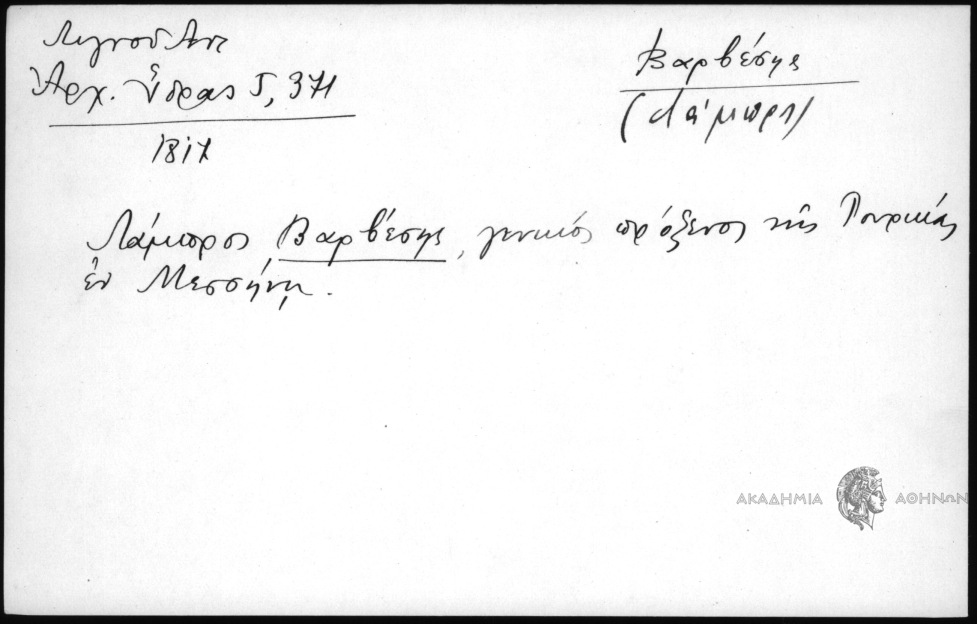 Λιγνού Αντ
Ἀρχ. Ὕδρας 5, 371
1817
Βαρβέσης
(Λάμπρ)
Λάμπρος Βαρβέσης, γενικός πρόξενος τῆς Τουρκίας
ἐν Μεσσήνῃ.
ΑΚΑΔΗΜΙΑ ΑΘΗΝΩΝ